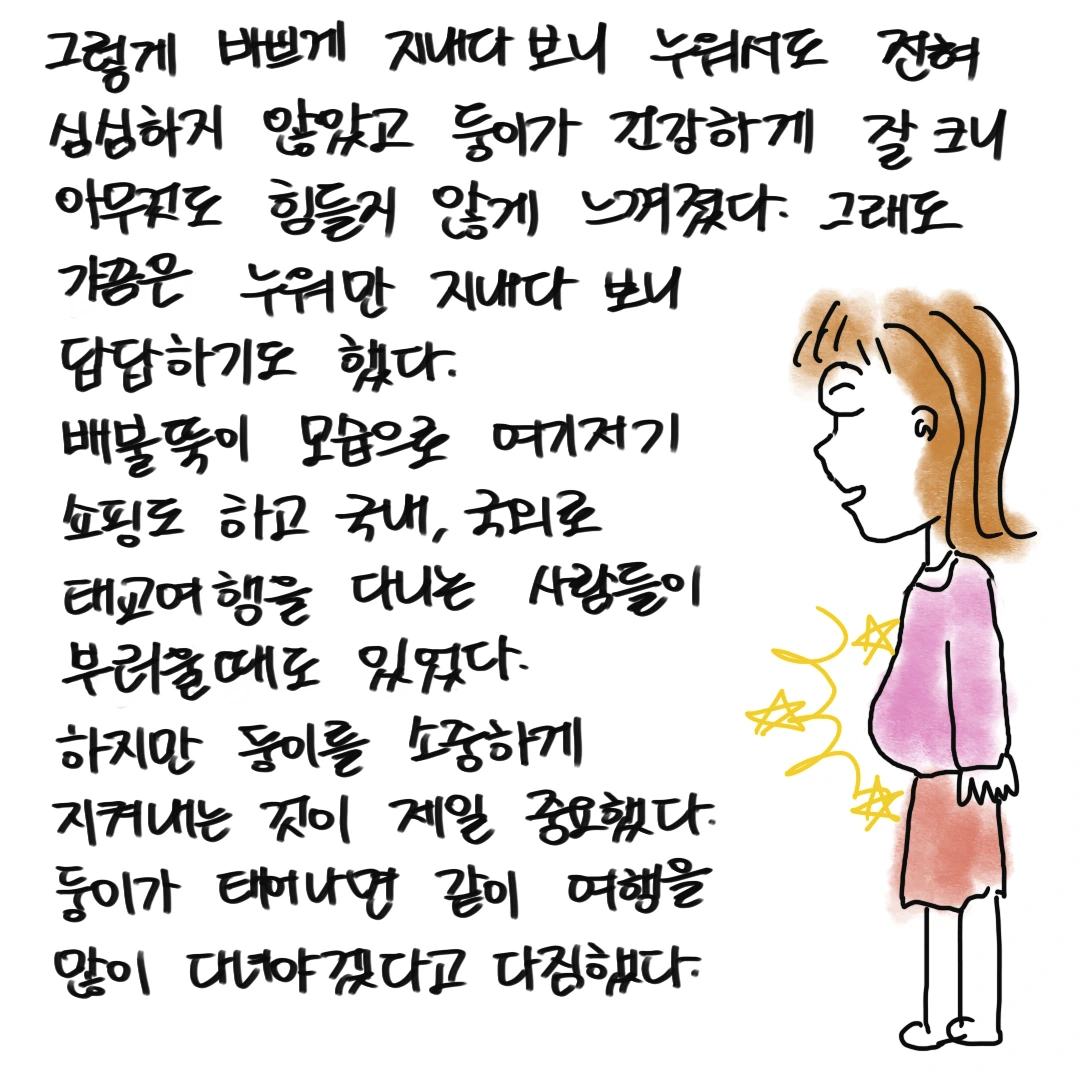 그렇게 바쁘게 지내다 보니 누워서도 전혀
심심하지 않았고 둥이가 건강하게 잘 크니
아무것도 힘들지 않게 느껴졌다. 그래도
가끔은 누워만 지내다 보니
답답하기도 했다.
배불뚝이 모습으로 여기저기
쇼핑도 하고 국내, 국외로
태교여행을 다니는 사람들이
부러울때도 있었다.
하지만 둥이를 소중하게
지켜내는 것이 제일 중요했다.
둥이가 태어나면 같이 여행을
많이 다녀야겠다고 다짐했다.